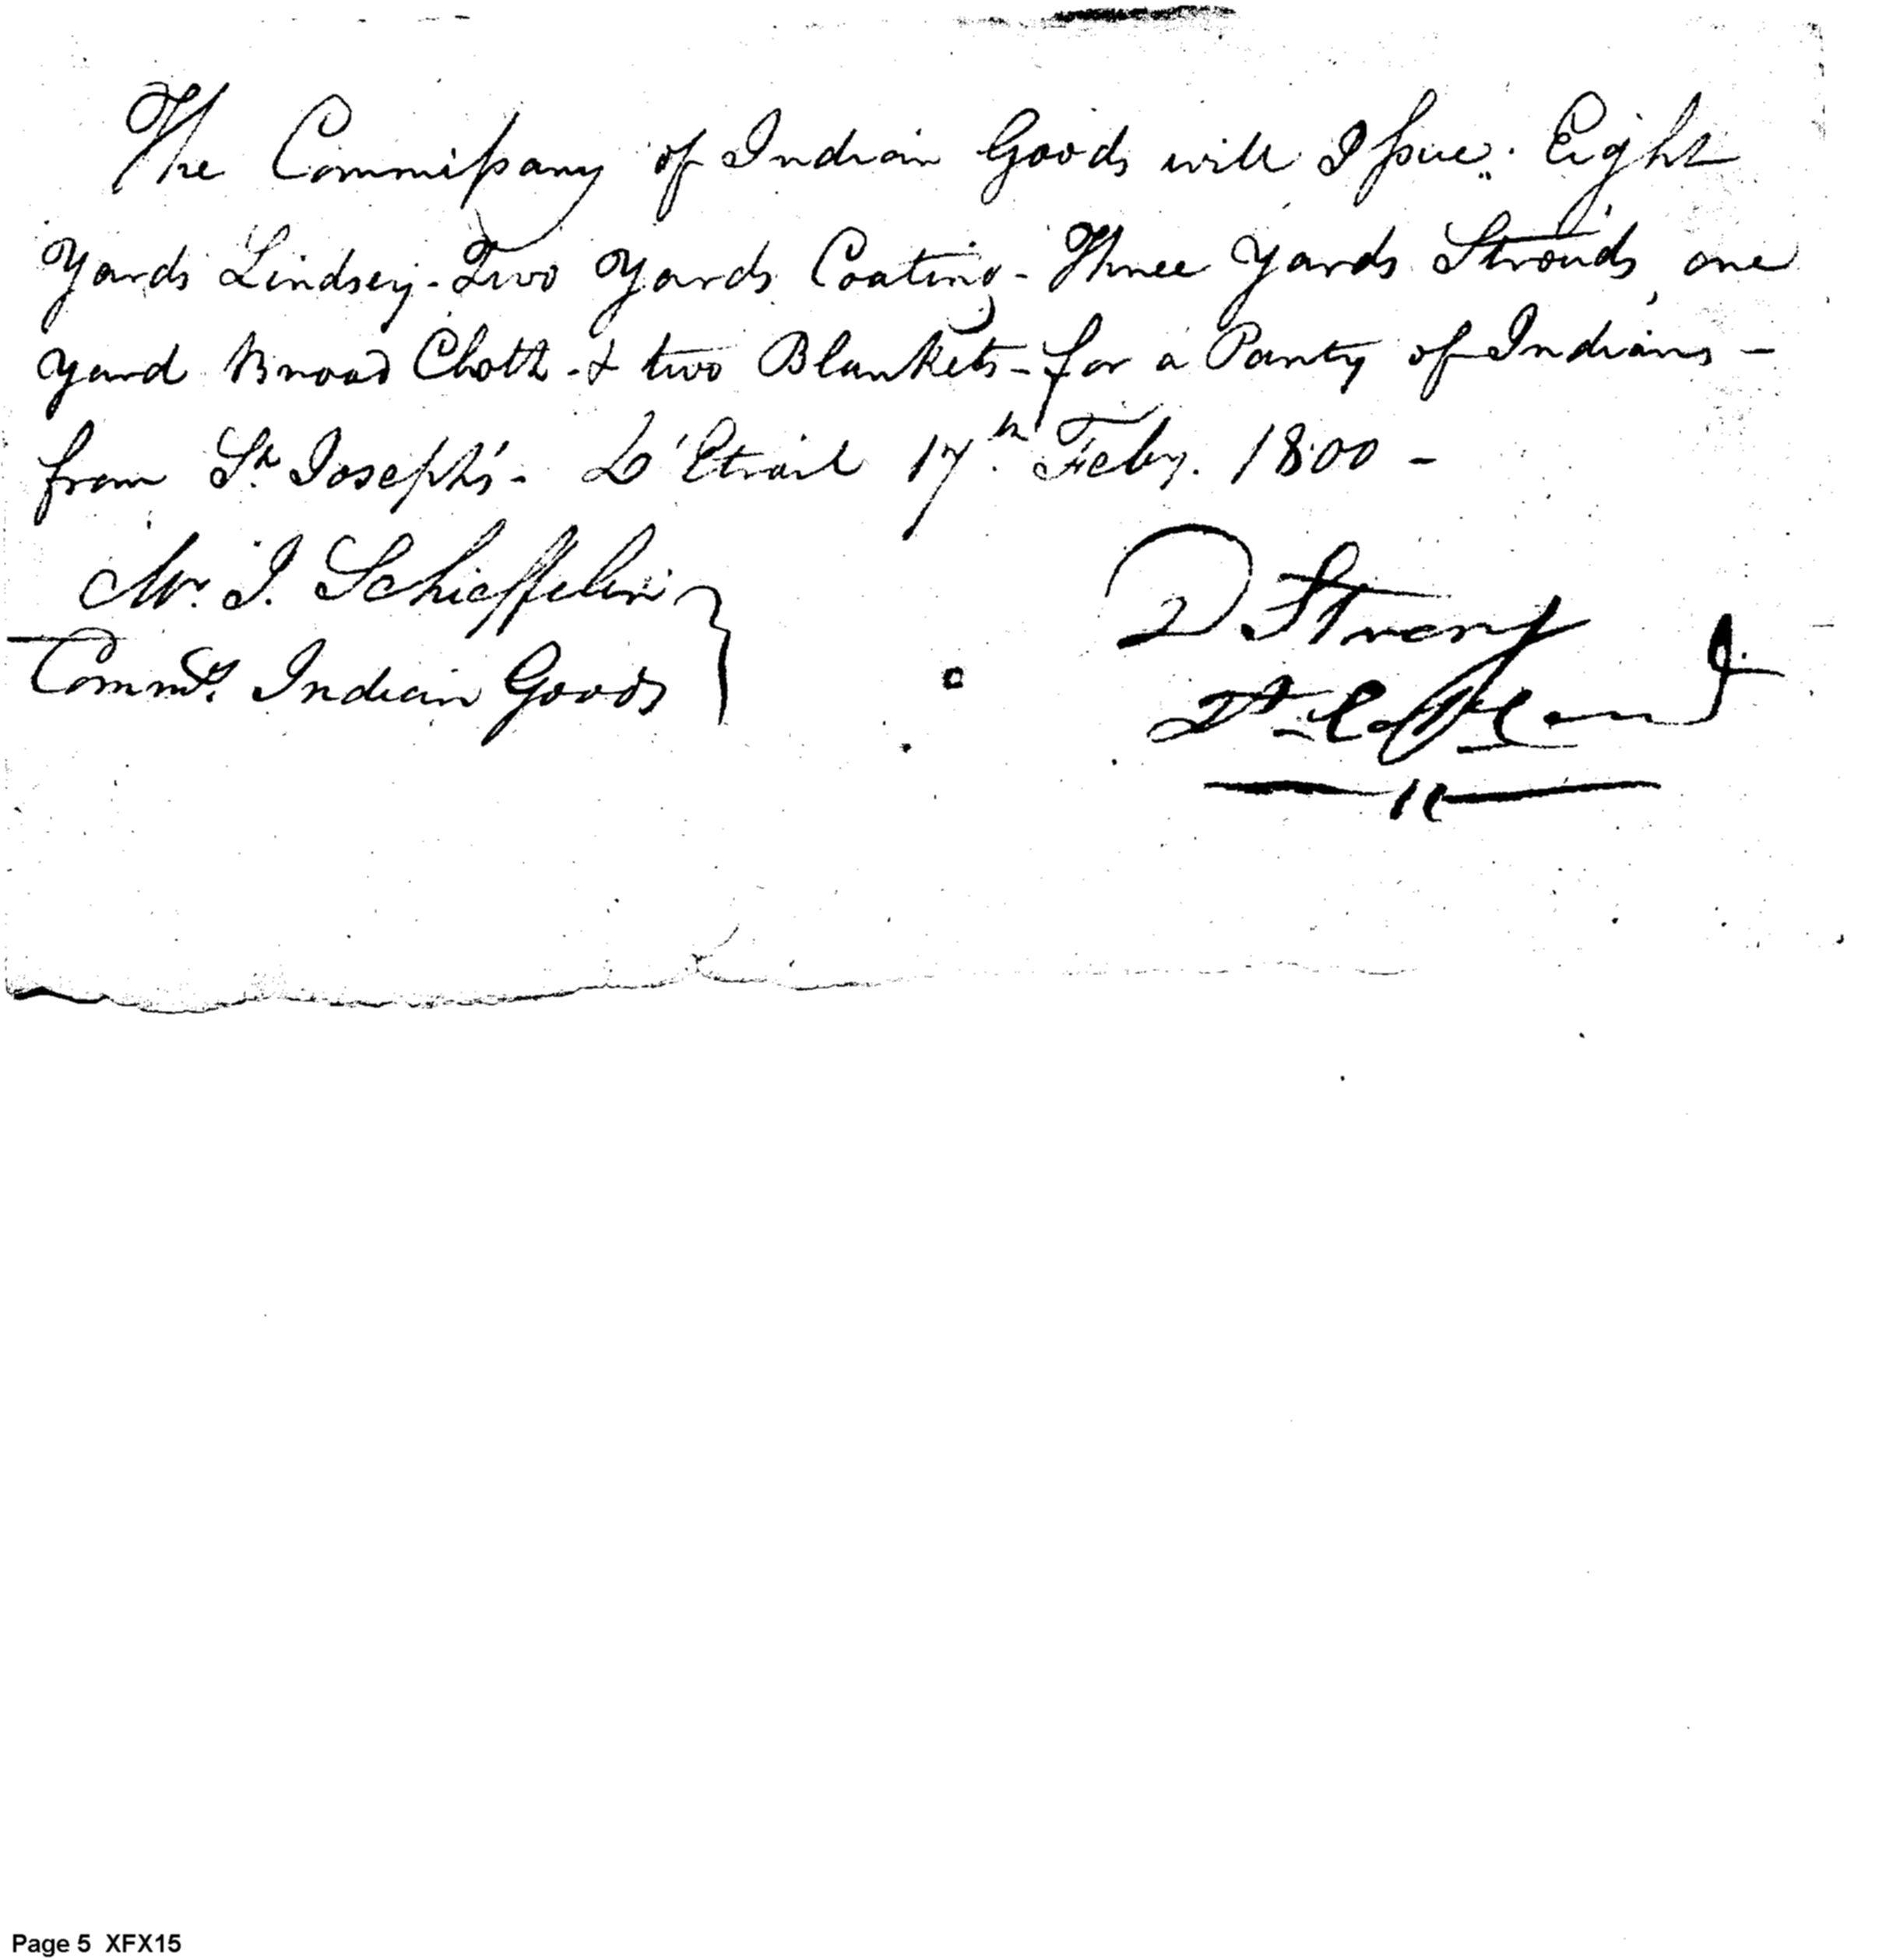 The Commissary of Indian Goods will Issue. Eight
Yards Lindsey - Two Yards Coating - Three Yards Strouds, one
yard Broad Cloth - & two Blankets - for a Party of Indians -
from St. Joseph's - D'Etroit 17th Feby. 1800 -
Mr. J. Schieffelin
Commy. Indian Goods
D Strong
Page 5 XFX15